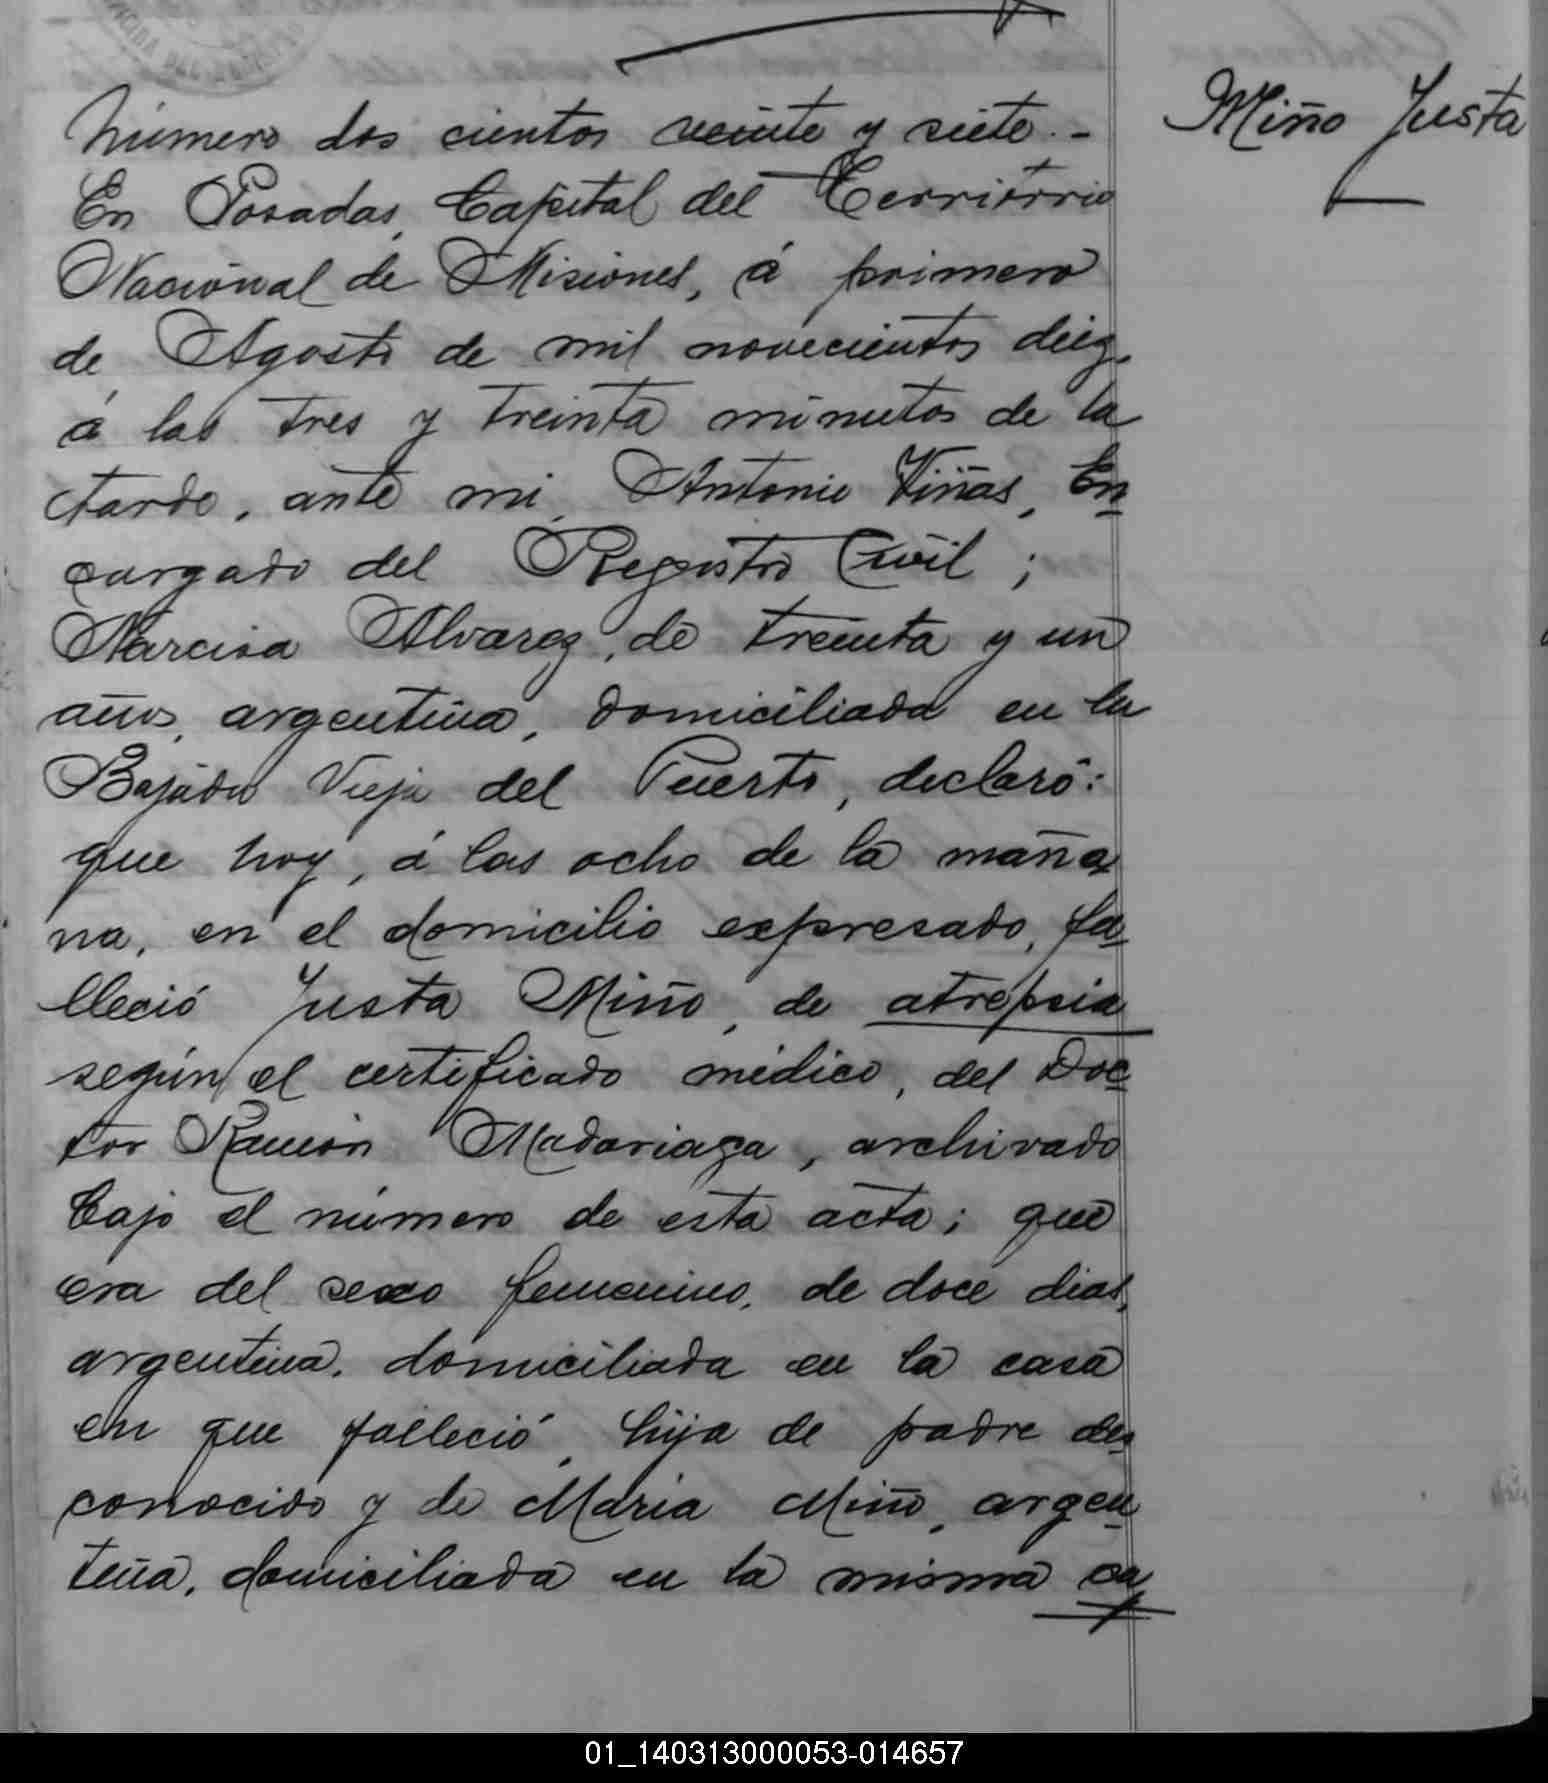 Miño Justa
Número dos cientos veinte y siete.-
En Posadas, Capital del Territorio
Nacional de Misiones, á primero
de Agosto de mil novecientos diez,
á las tres y treinta minutos de la
tarde, ante mi, Antonio Viñas, En
cargado del Registro Civil;
Narcisa Alvarez, de treinta y un
años, argentina, domiciliada en la
Bajada Vieja del Puerto, declaró:
que hoy, á las ocho de la maña
na, en el domicilio expresado, fa
lleció Justa Miño, de atrepsia
según el certificado médico, del Doc
tor Ramón Madariaga, archivado
bajo el número de esta acta; que
era del sexo femenino, de doce dias,
argentina, domiciliada en la casa
en que falleció, hija de padre des
conocido y de Maria Miño, argen
tina, domiciliada en la misma ca
01_140313000053-014657